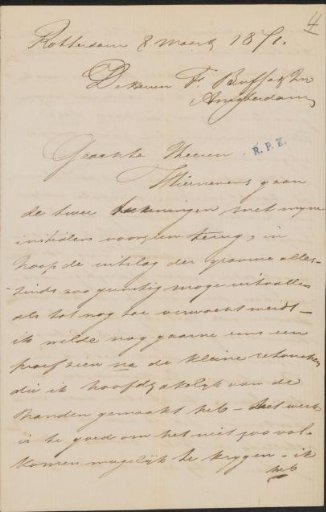 4
Rotterdam 8 Maart 1871.
De Heeren F. Buffa & Zn
Amsterdam
Geachte Heeren.
R.P.K.
Hiernevens gaan
de twee teekeningen met mijne
initialen voorzien terug, in
hoop de uitslag der gravure aller-
zinds zoo gunstig moge uitvallen
als tot nog toe verwacht werdt -
ik wilde nog gaarne eens een
proef zien na de kleine retouches
die ik hoofdzakelijk van de
handen gemaakt heb - het werk
is te goed om het niet zoo vol-
komen mogelijk te krijgen - ik
heb